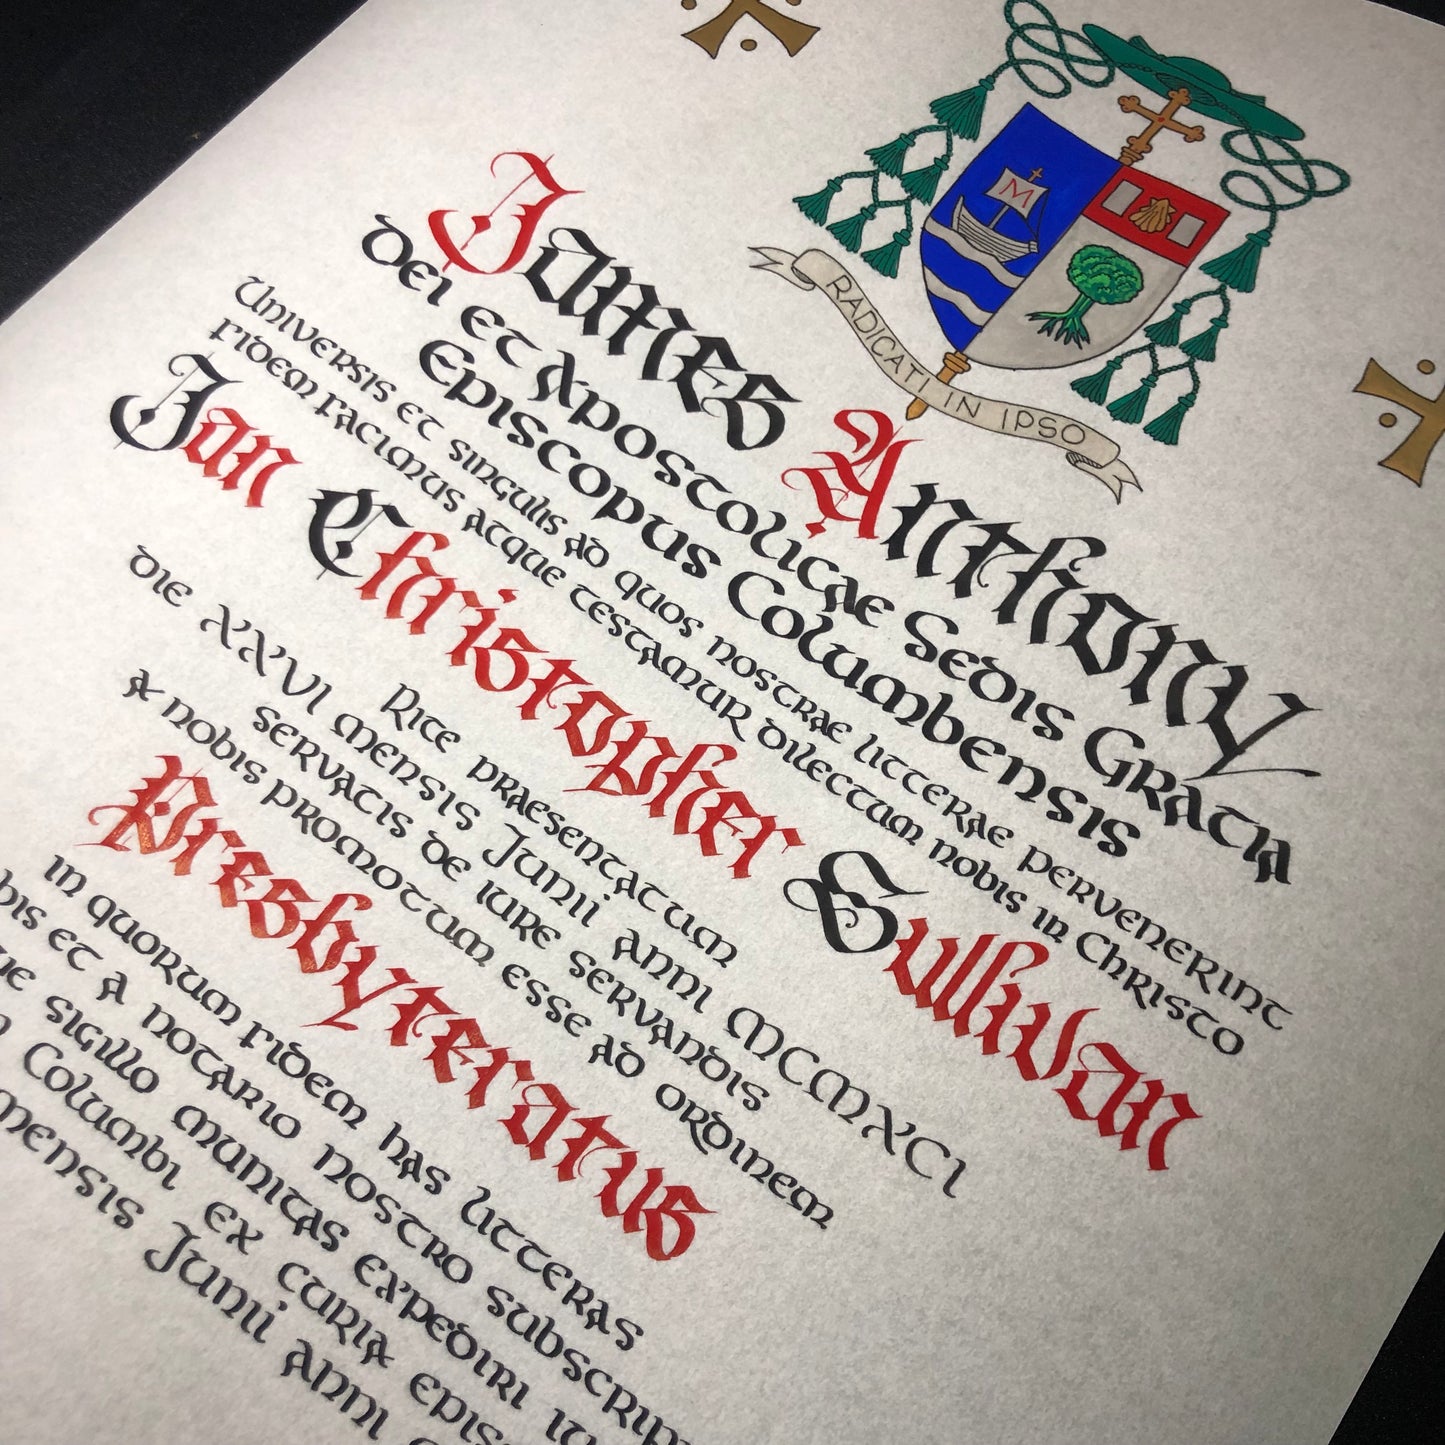 M
RADICATI IN IPSO
James Anthony
Dei et Apostolicae Sedis Gratia
Episcopus Columbensis
Universis et singulis ad quos nostrae litterae pervenerint
fidem facimus atque testamur dilectum nobis in Christo
Jan Christopher Sullivan
Rite praesentatum
die XXVI mensis Junii anni MCMXCI
servatis de iure servandis
a nobis promotum esse ad ordinem
Presbyteratus
in quorum fidem has litteras
et a notario nostro
sigillo munitas expediri
Columbi ex curia
mensis Junii anni